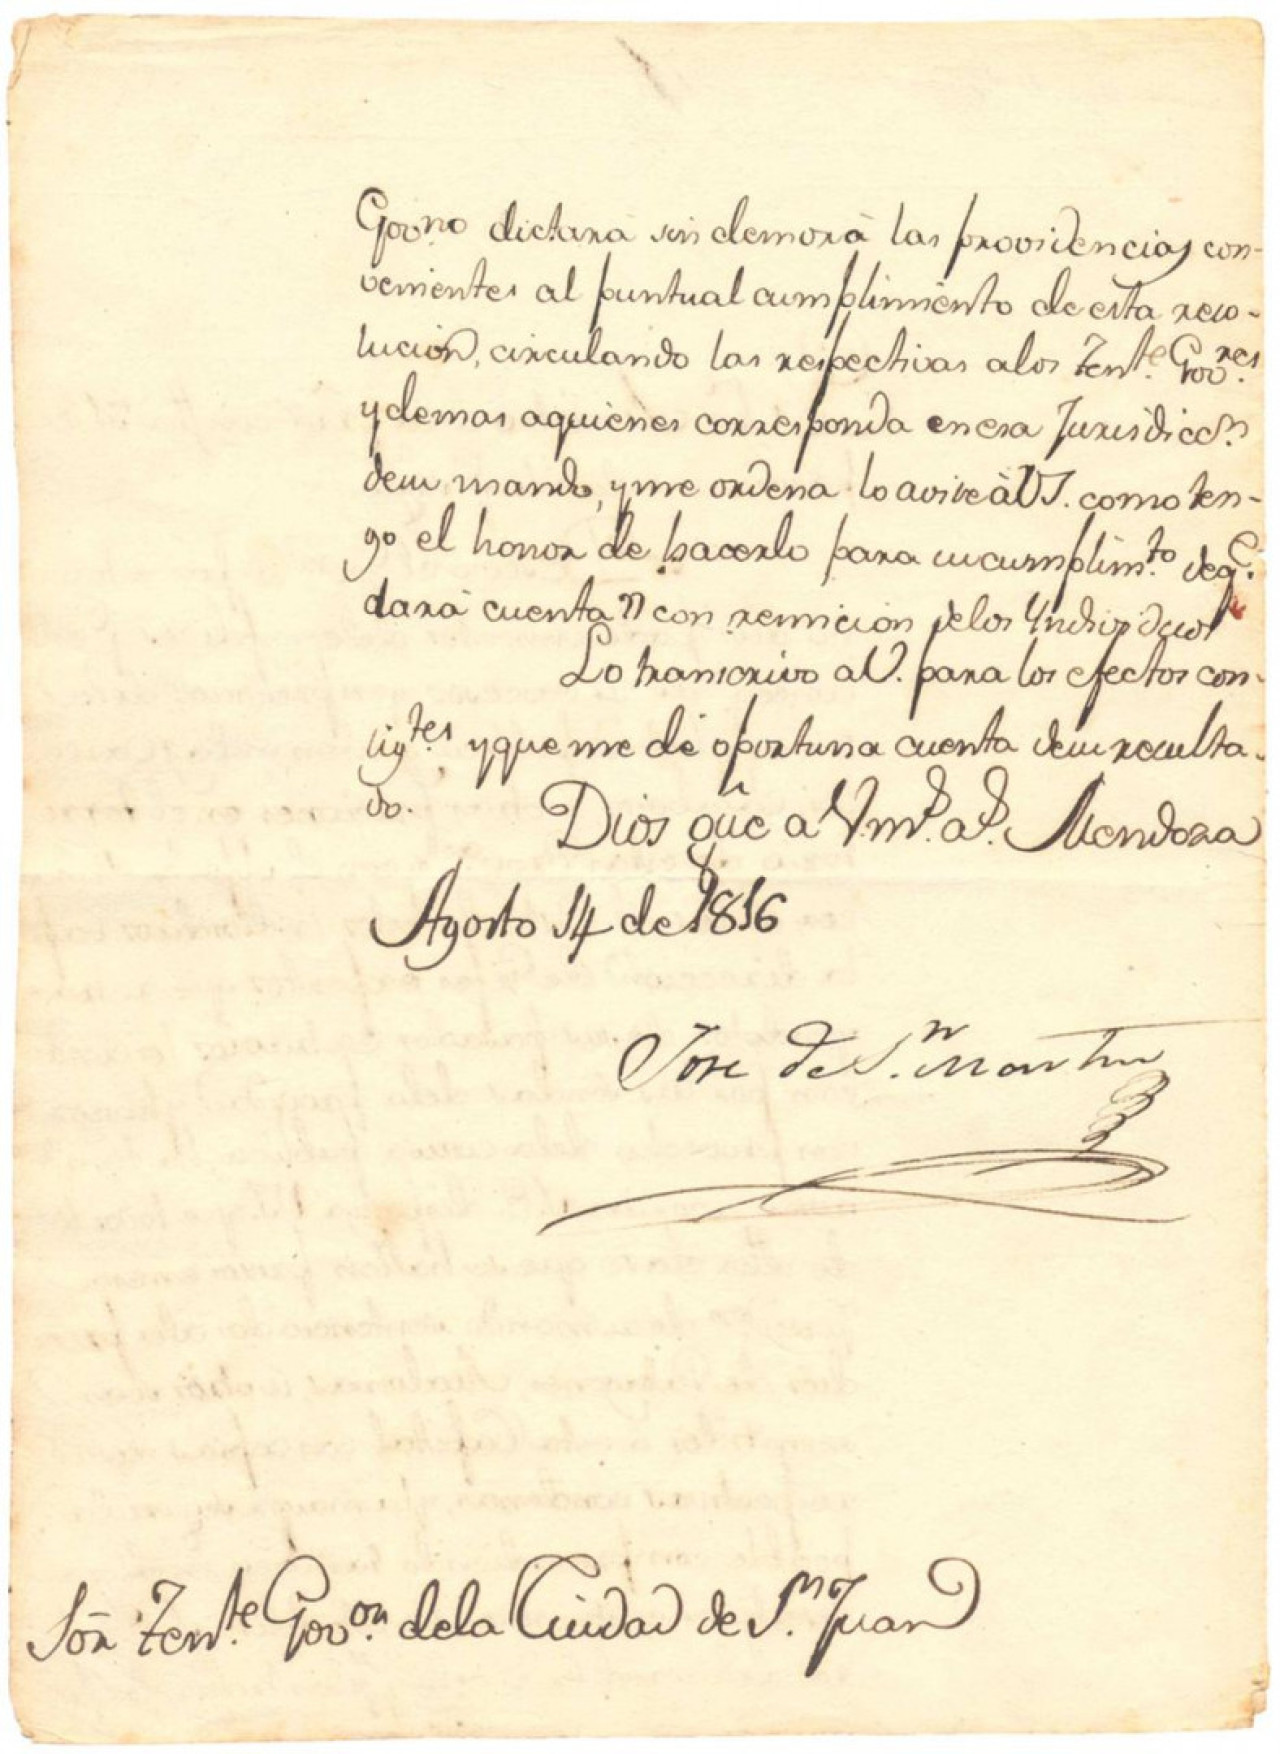 Govno. dictará sin demora las providencias con-
venientes al puntual cumplimiento de esta reso-
lucion, circulando las respectivas alos Tente. Govres.
y demas aquienes corresponda enesa Jurisdiccn.
desu mando, yme ordena lo avise á VS. como ten-
go el honor de hacerlo para sucumplimto. deq.e
dará cuenta con remicion delos Yndividuos
Lo transcrivo aV. para los efectos con-
sigtes yqueme dé oportuna cuenta desu resulta-
do. Dios gûe a V. ms. as. Mendoza
Agosto 14 de 1816
Jose de Sn. Martin
Sõr Tente. Govor. dela Ciudad de Sn. Juan